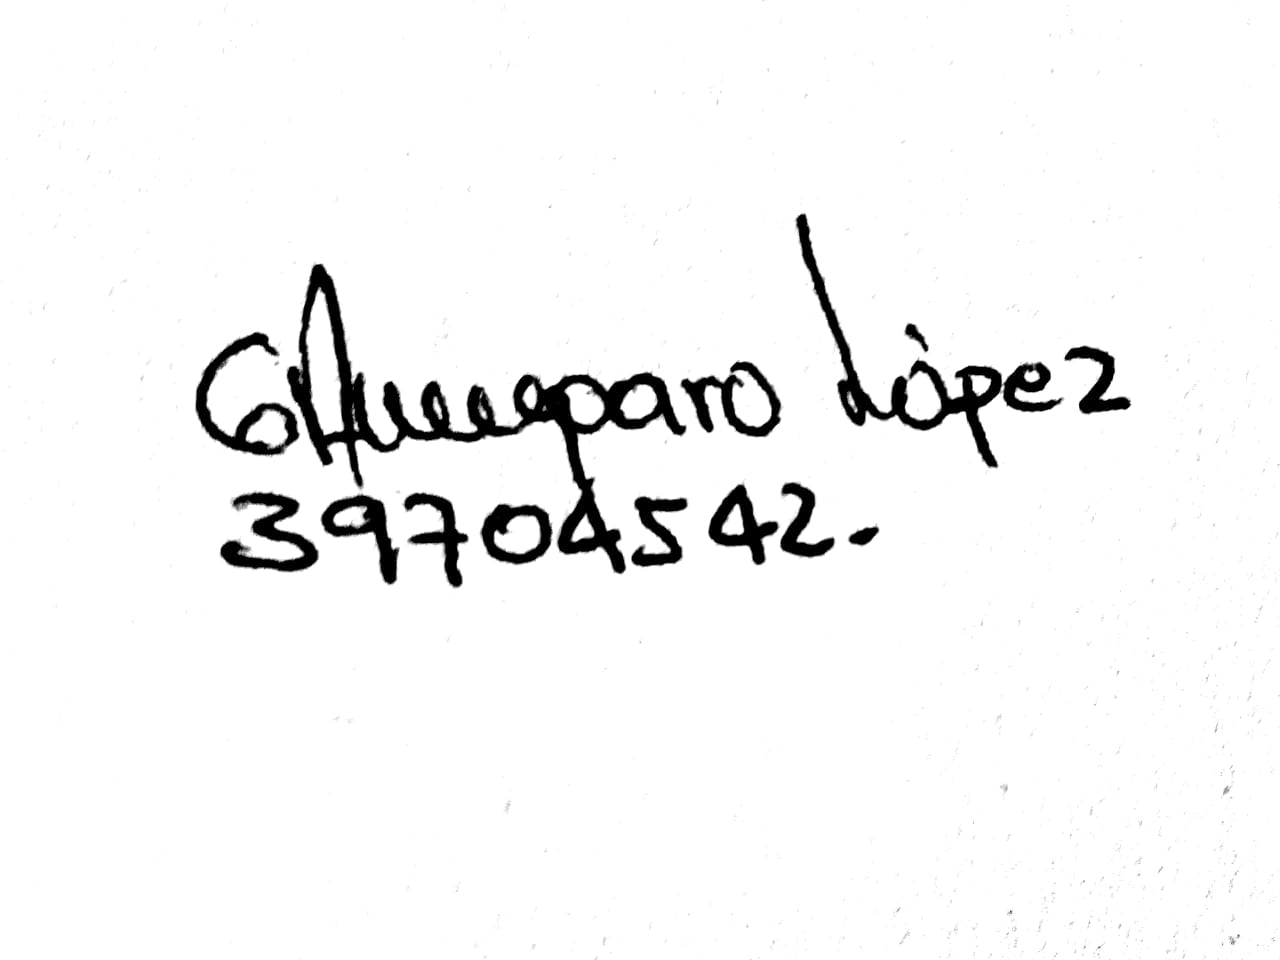 Amparo López
39704542.